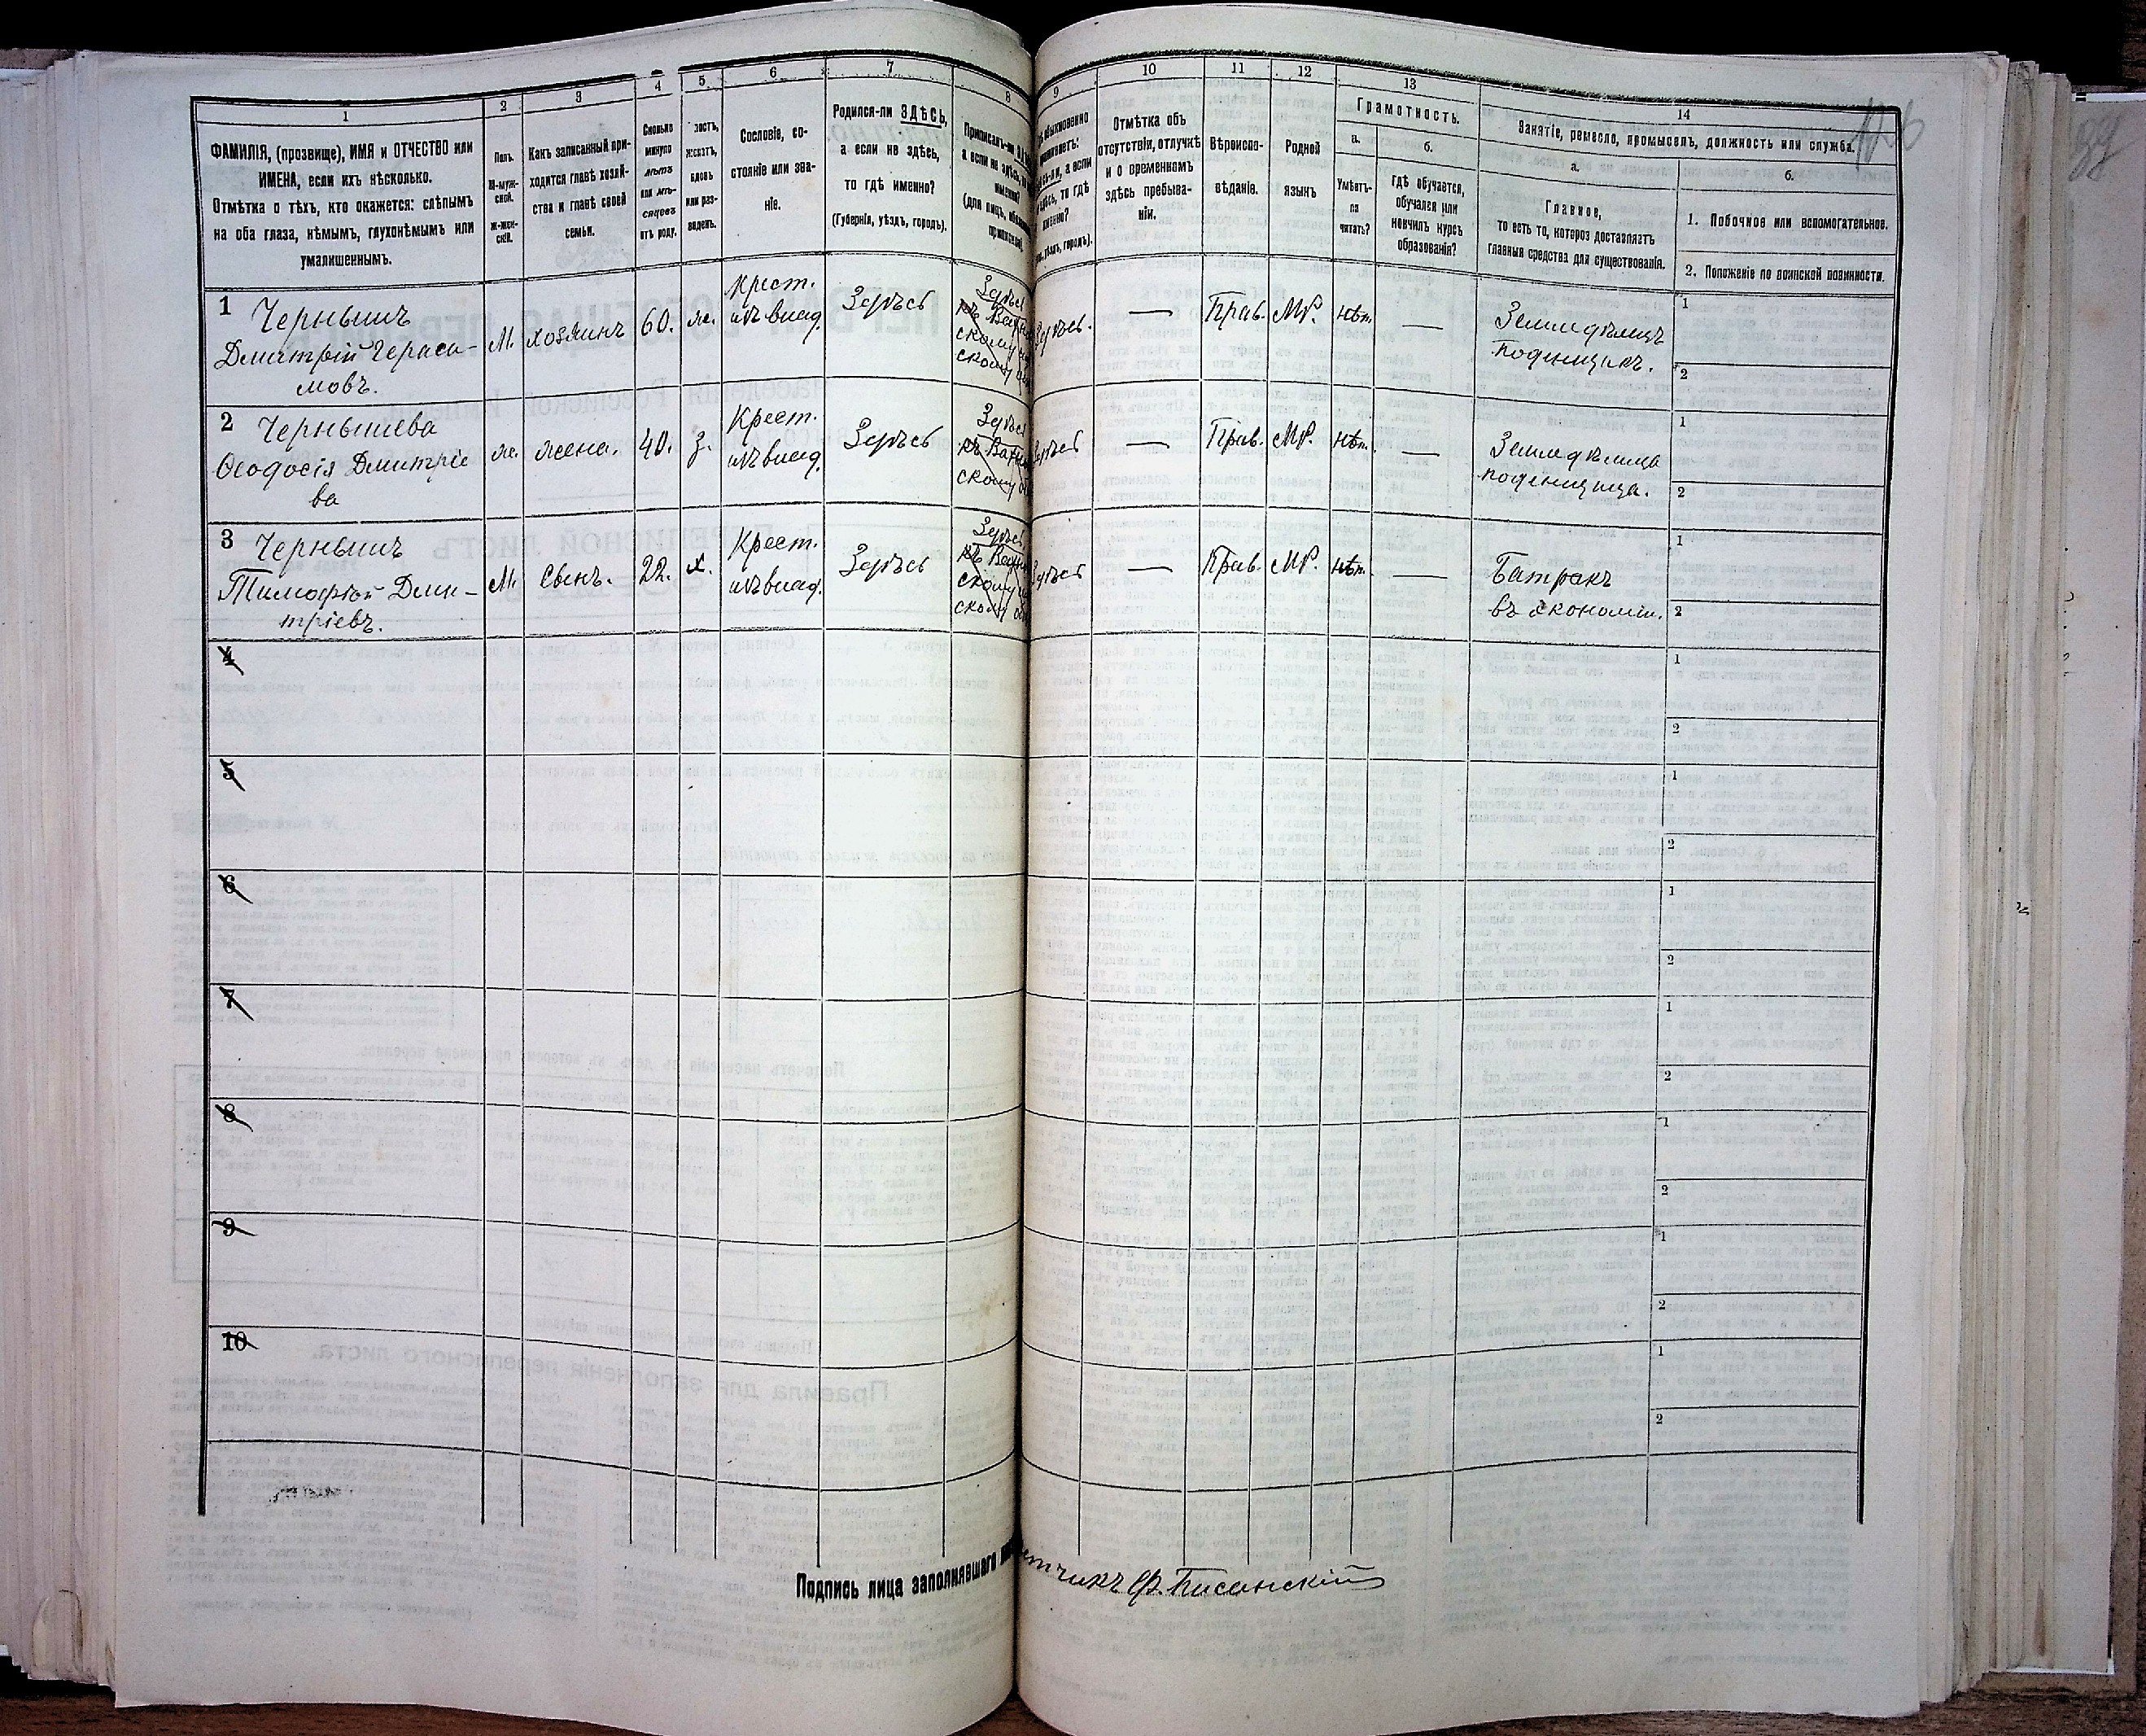 1
2
3
4
5
6
7
8
9
10
11
12
13
14
ФАМИЛІЯ, (прозвище), ИМЯ и ОТЧЕСТВО или
ИМЕНА, если ихъ нѣсколько.
Отмѣтка о тѣхъ, кто окажется: слѣпымъ
на оба глаза, нѣмымъ, глухонѣмымъ или
умалишеннымъ.
Полъ.
М-муж-
ской.
Ж-жен-
скій.
Какъ записанный при-
ходится главѣ хозяй-
ства и главѣ своей
семьи.
Сколько
минуло
лѣтъ
или мѣ-
сяцевъ
отъ роду.
вдовъ
или раз-
веденъ.
Сословіе, со-
стояніе или зва-
ніе.
Родился-ли ЗДѢСЬ,
а если не здѣсь,
то гдѣ именно?
(Губернія, уѣздъ, городъ).
Приписанъ-ли
а если не
Отмѣтка объ
отсутствіи, отлучкѣ
и о временномъ
здѣсь пребыва-
ніи.
Вѣроиспо-
вѣданіе.
Родной
языкъ
Грамотность.
а.
Умѣетъ-
ли
читать?
б.
гдѣ обучается,
обучался или
кончилъ курсъ
образованія?
Занятіе, ремесло, промыселъ, должность или служба.
а.
Главное,
то есть то, которое доставляетъ
главныя средства для существованія.
б.
1. Побочное или вспомогательное.
2. Положеніе по воинской повинности.
1 Чернышъ
Дмитрій Гераси-
мовъ.
М. хозяинъ 60. ж.
Крест.
изъ влад.
Здѣсь
Здѣсь
Здѣсь.
—
Прав. МР. нѣт. —
Земледѣлецъ
поденщикъ.
1
2
2 Чернышева
Ѳеодосія Дмитріе
ва
ж. жена. 40. з.
Крест.
изъ влад.
Здѣсь
Здѣсь
Здѣсь
—
Прав. МР. нѣт. —
Земледѣлица
поденщица.
1
2
3 Чернышъ
Тимофѣй Дми-
тріевъ.
М. Сынъ. 22. х.
Крест.
изъ влад.
Здѣсь
Здѣсь
Здѣсь
—
Прав. МР. нѣт. —
Батракъ
въ экономіи.
1
2
4
1
2
5
1
2
6
1
2
7
1
2
8
1
2
9
1
2
10
1
2
Подпись лица заполнявшаго
Ф. Писанскій